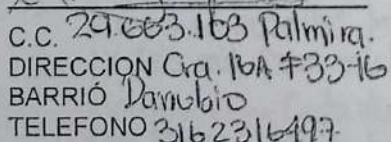 C.C. 29.663.163 Palmira.
DIRECCION Cra. 16A #33-16
BARRIÓ Danubio
TELEFONO 3162316497